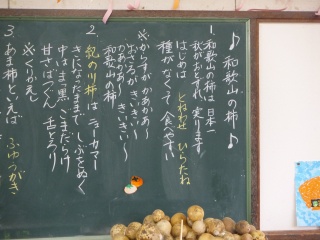 ♪ 和歌山の柿 ♪
1. 和歌山の柿は 日本一
秋がおとずれ 実ります
はじめは とねわせ ひらたね
種がなくて 食べやすい
※からすが かあかあ〜
おさるが きいきい〜
かあかあ〜 きいきい〜
和歌山の柿
2. 紀の川柿 は ニューカマー
きになったままで しぶをぬく
中は まっ黒 ごまだらけ
甘さばつぐん 舌とろり
※くりかえし
3. あま柿といえば ふゆうがき